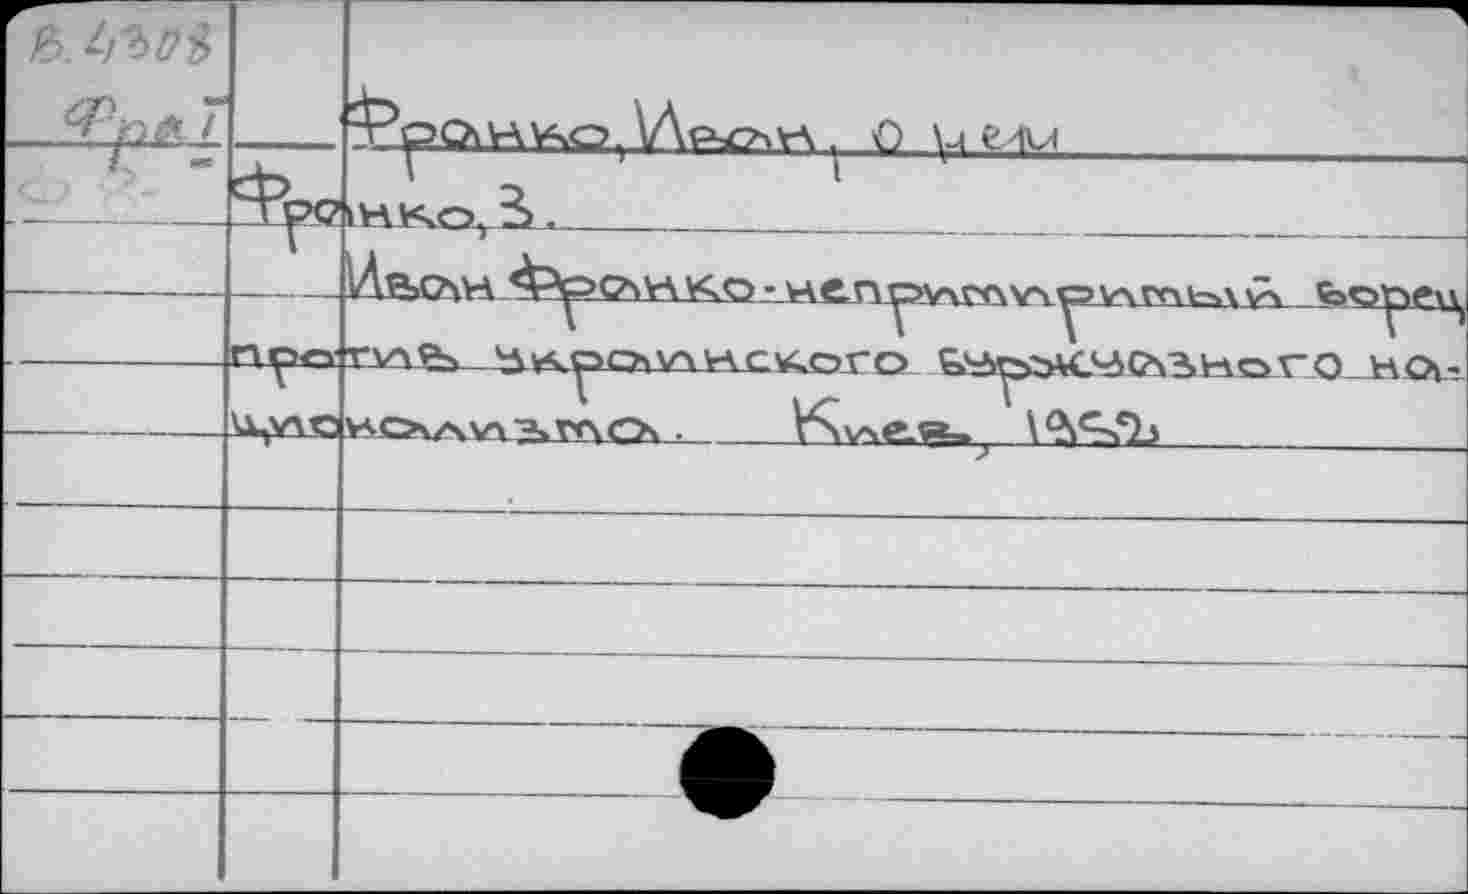 Франко, Иван, о нем
Франко, З.
Иван Франко - непримиримый борец
против украинского буржуазного на-
ционализма. Киев,